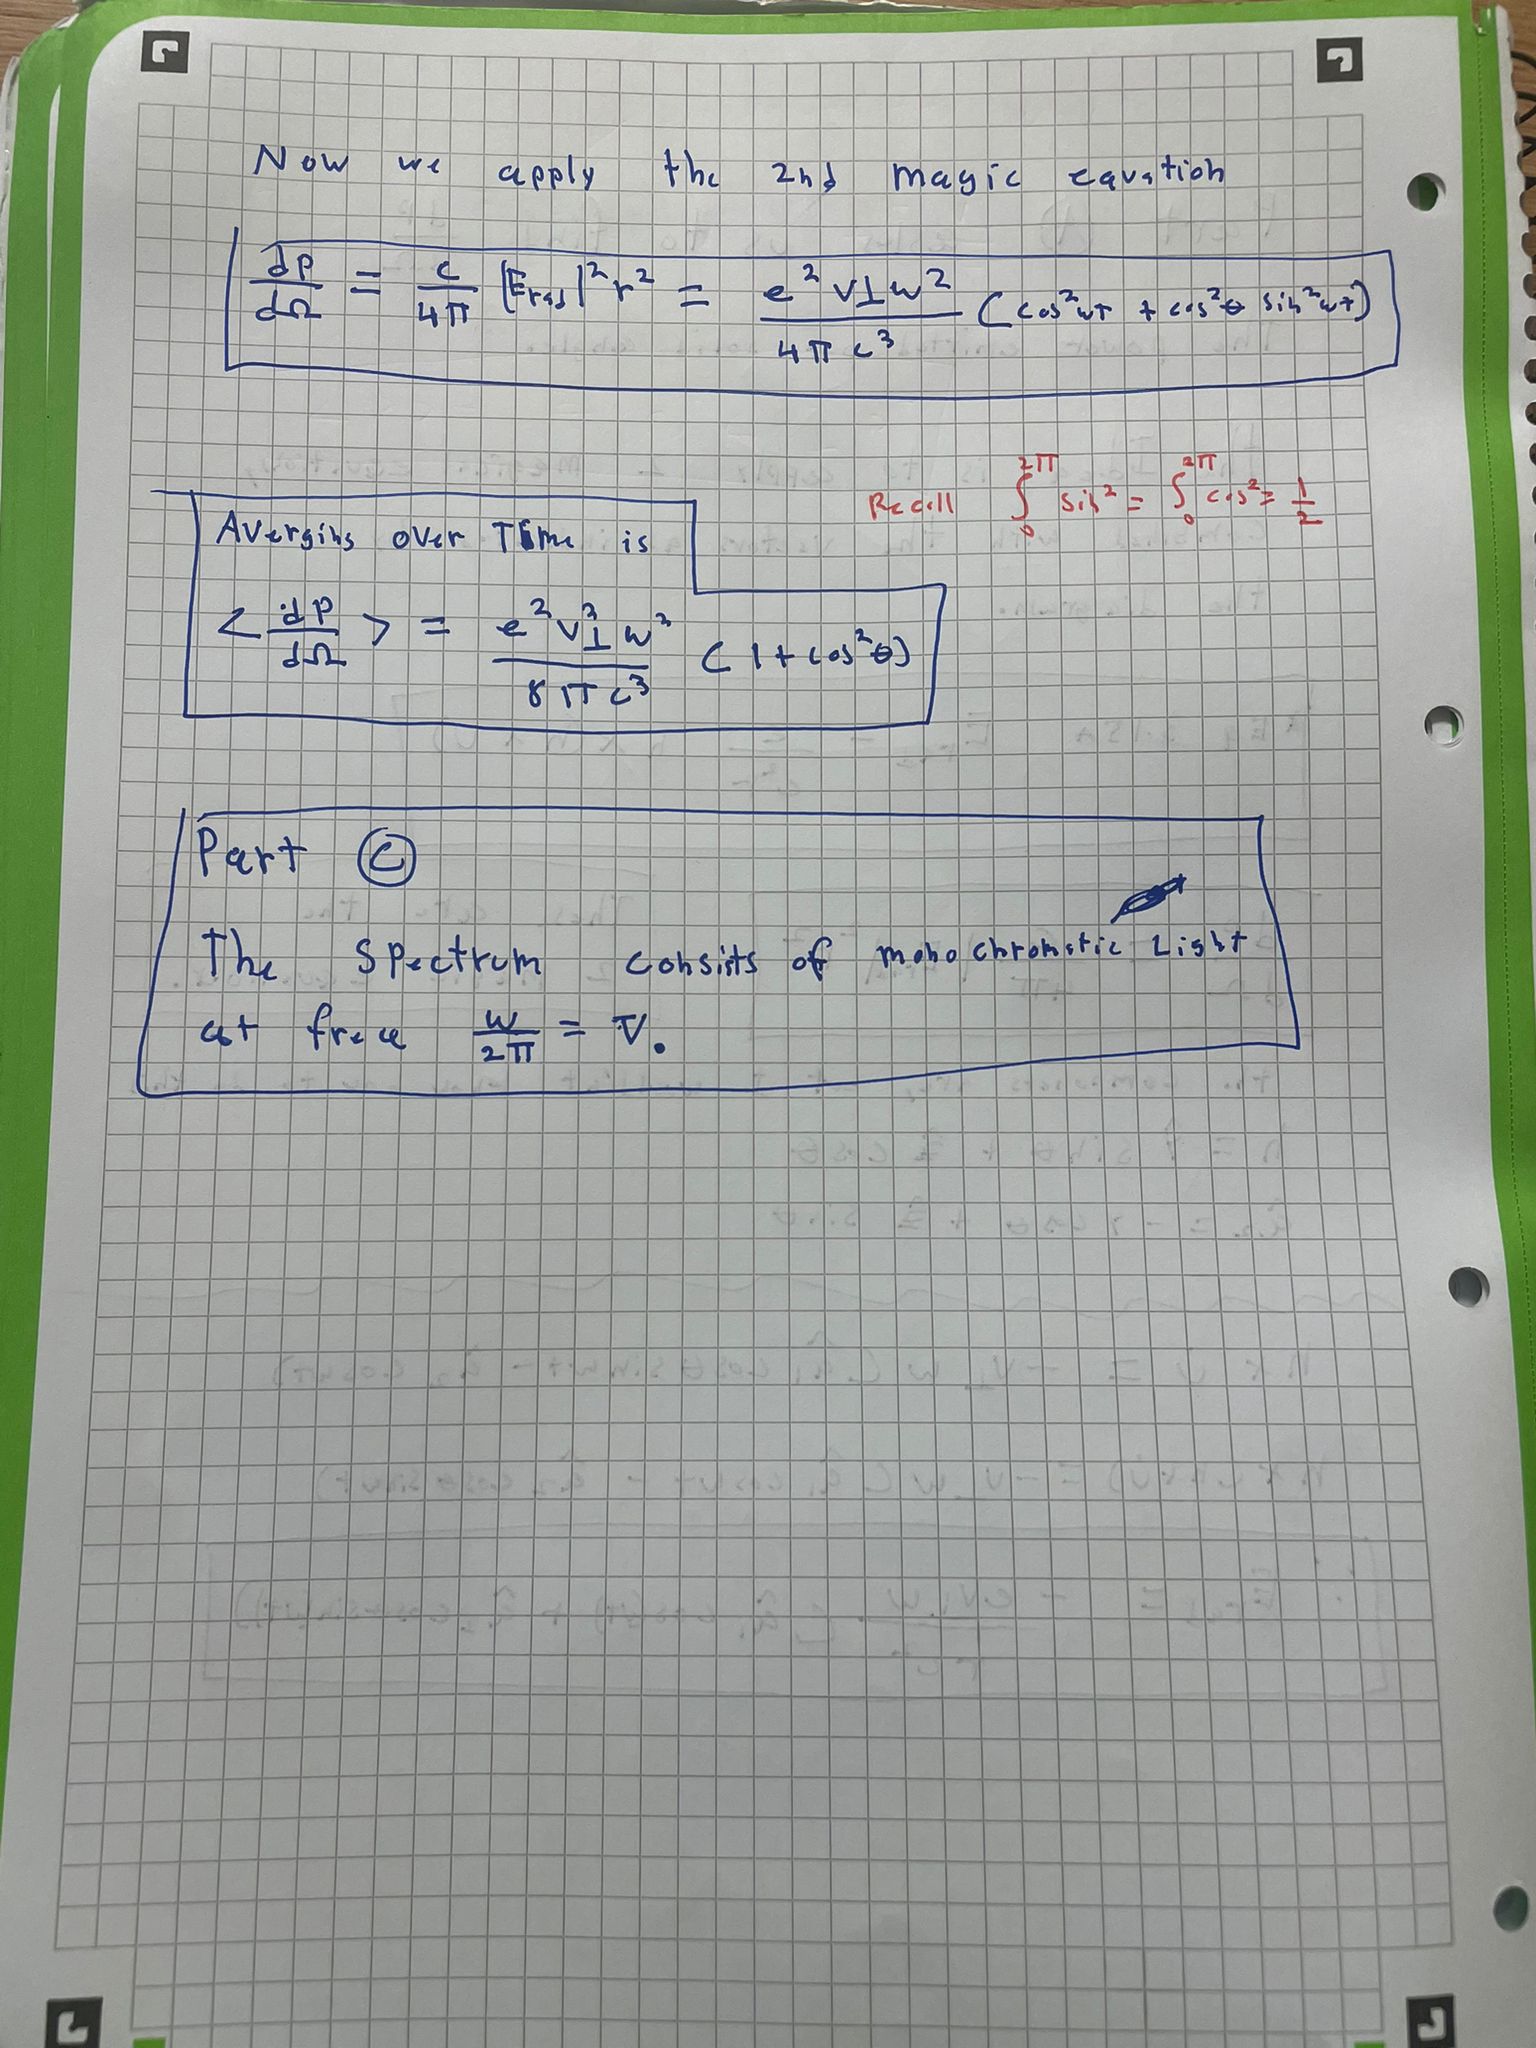 Now we apply the 2nd magic equation
dP/dΩ = c/4π |Erad|² r² = e² v⊥ w² / 4π c³ (cos² wt + cos² θ sin² wt)
Recall ∫₀^2π sin² = ∫₀^2π cos² = 1/2
Averging over Time is
< dP/dΩ > = e² v⊥² w² / 8 π c³ (1 + cos² θ)
Part (c)
The Spectrum consists of monochromatic Light
at freq w/2π = ν.